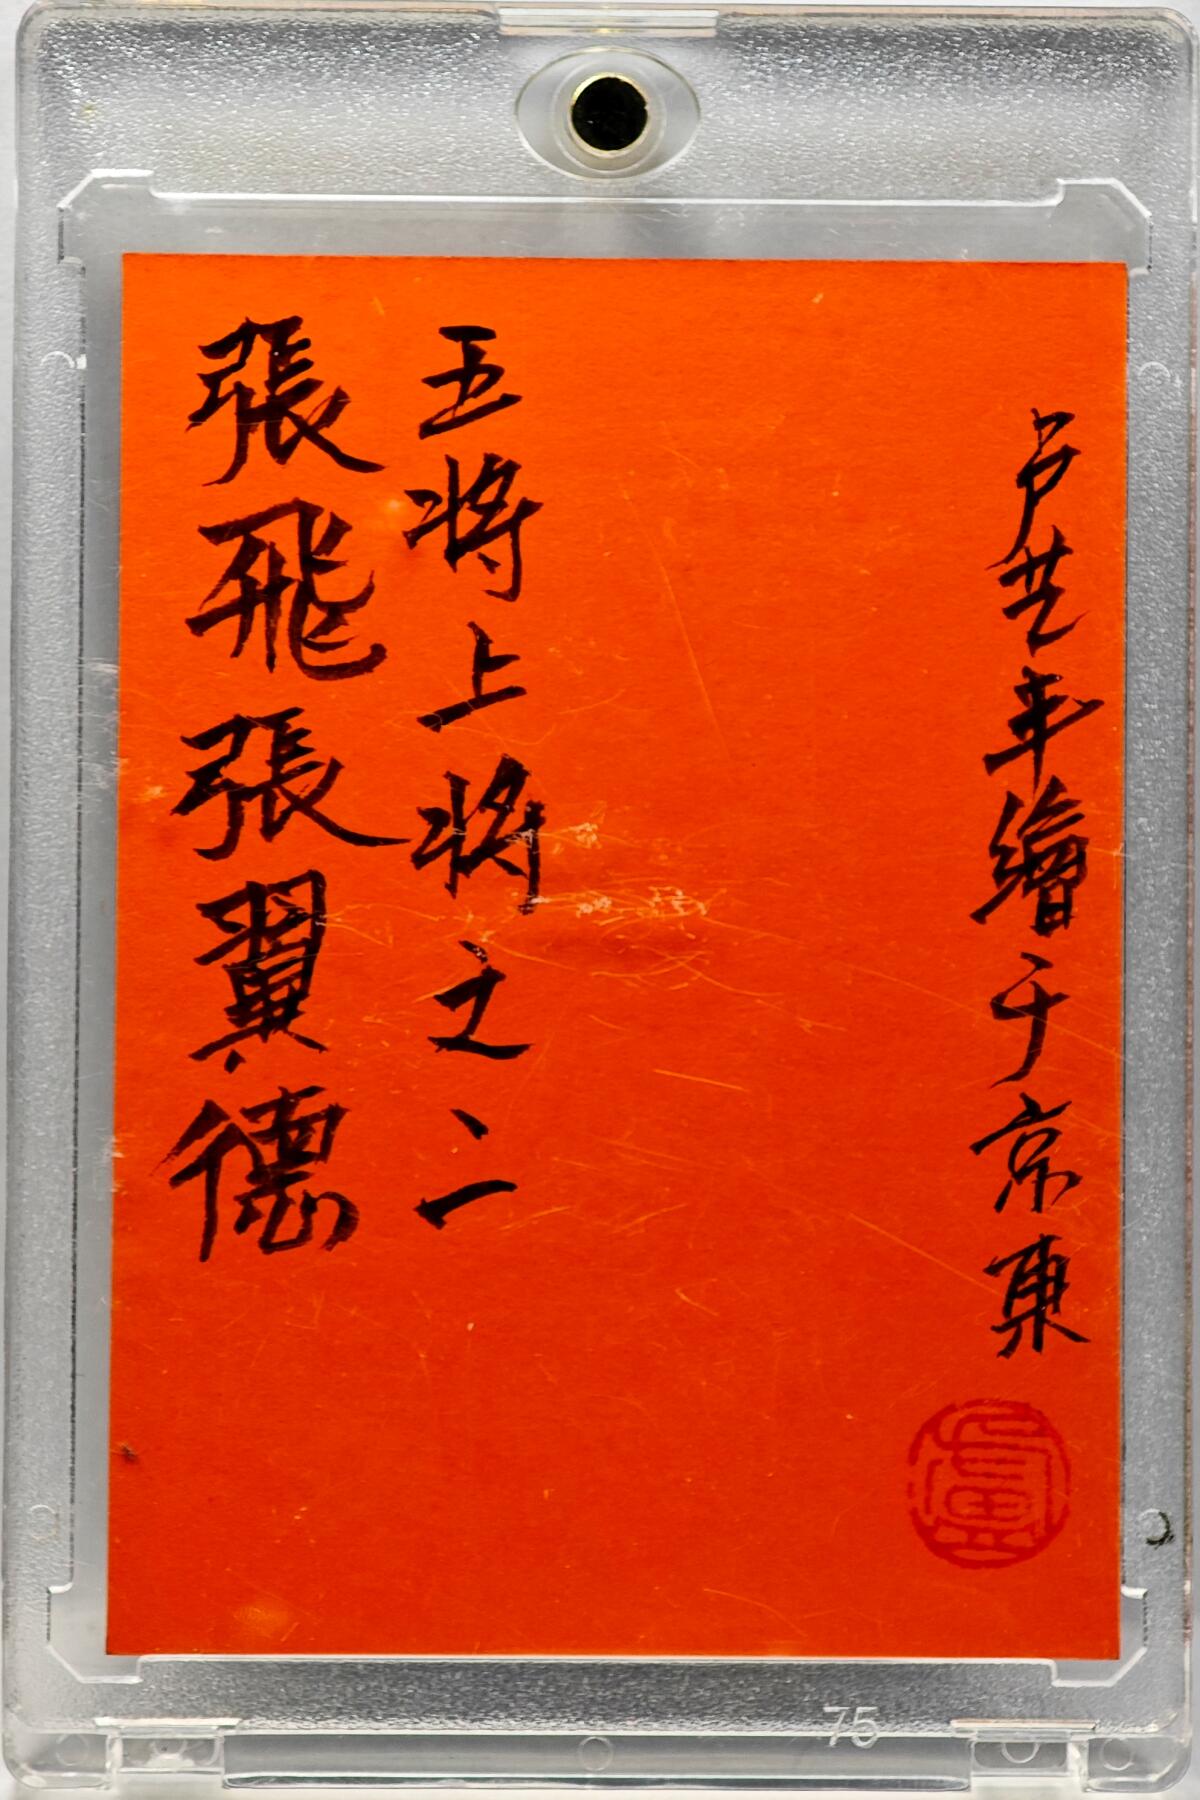 卢艺繪于京東
五将上将之二
張飛張翼德
盧
75